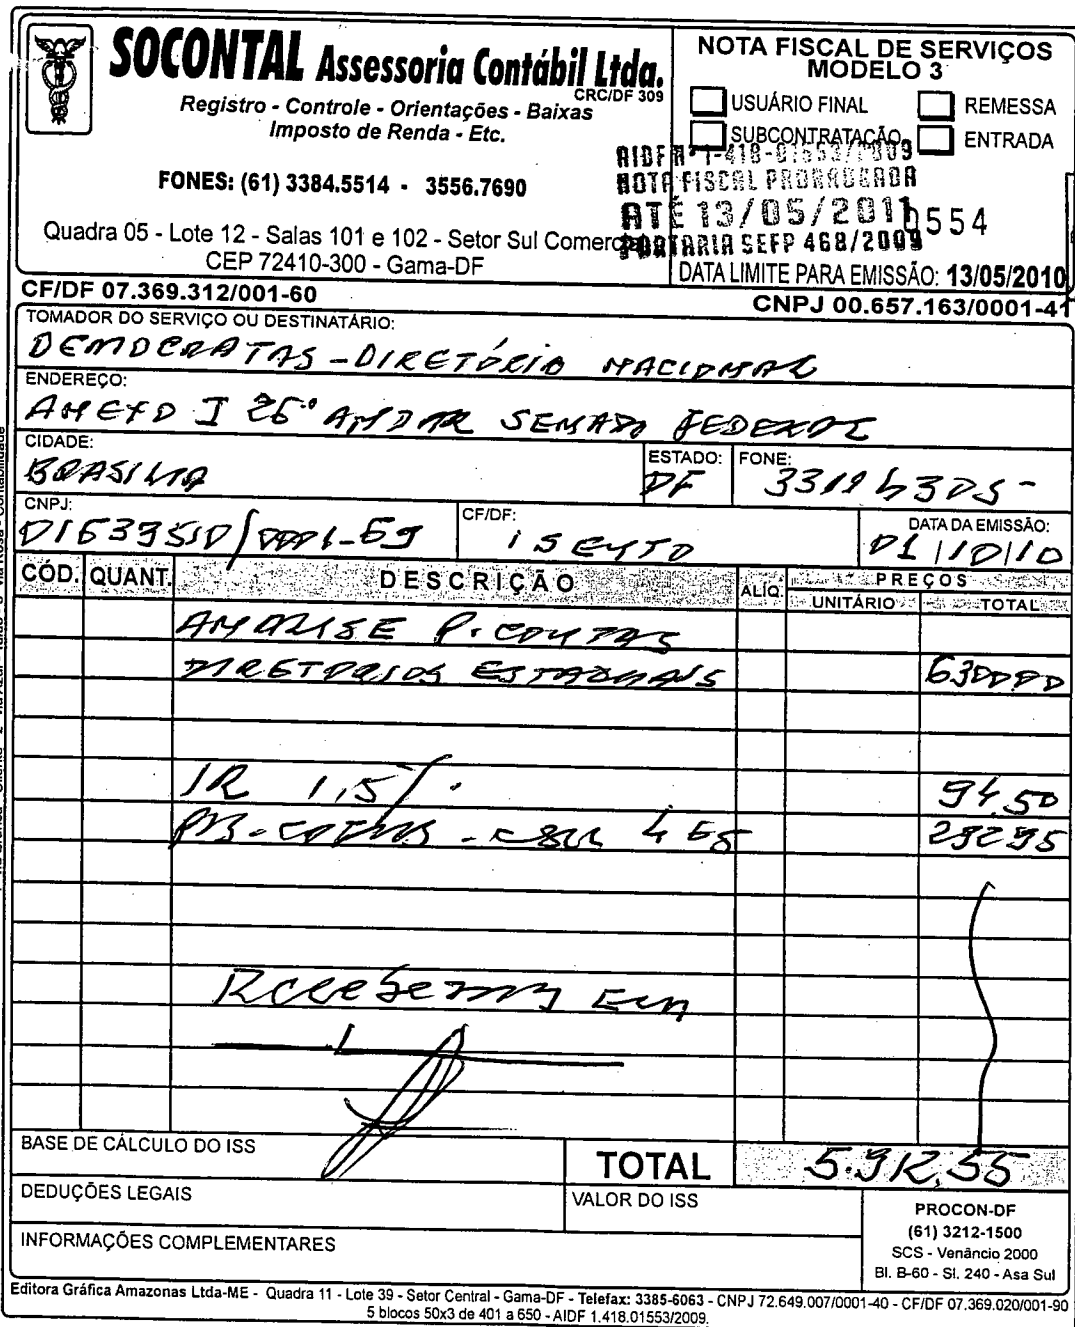 SOCONTAL Assessoria Contábil Ltda.
CRC/DF 309
Registro - Controle - Orientações - Baixas
Imposto de Renda - Etc.
FONES: (61) 3384.5514 - 3556.7690
Quadra 05 - Lote 12 - Salas 101 e 102 - Setor Sul Comercial
CEP 72410-300 - Gama-DF
NOTA FISCAL DE SERVIÇOS
MODELO 3
USUÁRIO FINAL REMESSA
SUBCONTRATAÇÃO ENTRADA
AIDF Nº 1-418-01553/2009
NOTA FISCAL PRORROGADA
ATÉ 13/05/2011
0554
PORTARIA SEFP 468/2009
DATA LIMITE PARA EMISSÃO: 13/05/2010
CF/DF 07.369.312/001-60 CNPJ 00.657.163/0001-41
TOMADOR DO SERVIÇO OU DESTINATÁRIO:
DEMOCRATAS - DIRETÓRIO NACIONAL
ENDEREÇO:
ANEXO I 26º ANDAR SENADO FEDERAL
CIDADE: ESTADO: FONE:
BRASILIA DF 3311 4305
CNPJ: CF/DF: DATA DA EMISSÃO:
01633510/0001-69 ISENTO 01/10/10
CÓD. QUANT. DESCRIÇÃO ALÍQ. PREÇOS
UNITÁRIO TOTAL
ANALISE P. CONTAS
DIRETORIOS ESTADUAIS 630000
IR 1,5% 94,50
PIS-COFINS-CSLL 4 65 29295
Recebemos Em
BASE DE CÁLCULO DO ISS
TOTAL 5.912,55
DEDUÇÕES LEGAIS VALOR DO ISS
INFORMAÇÕES COMPLEMENTARES
PROCON-DF
(61) 3212-1500
SCS - Venâncio 2000
Bl. B-60 - Sl. 240 - Asa Sul
Editora Gráfica Amazonas Ltda-ME - Quadra 11 - Lote 39 - Setor Central - Gama-DF - Telefax: 3385-6063 - CNPJ 72.649.007/0001-40 - CF/DF 07.369.020/001-90
5 blocos 50x3 de 401 a 650 - AIDF 1.418.01553/2009.